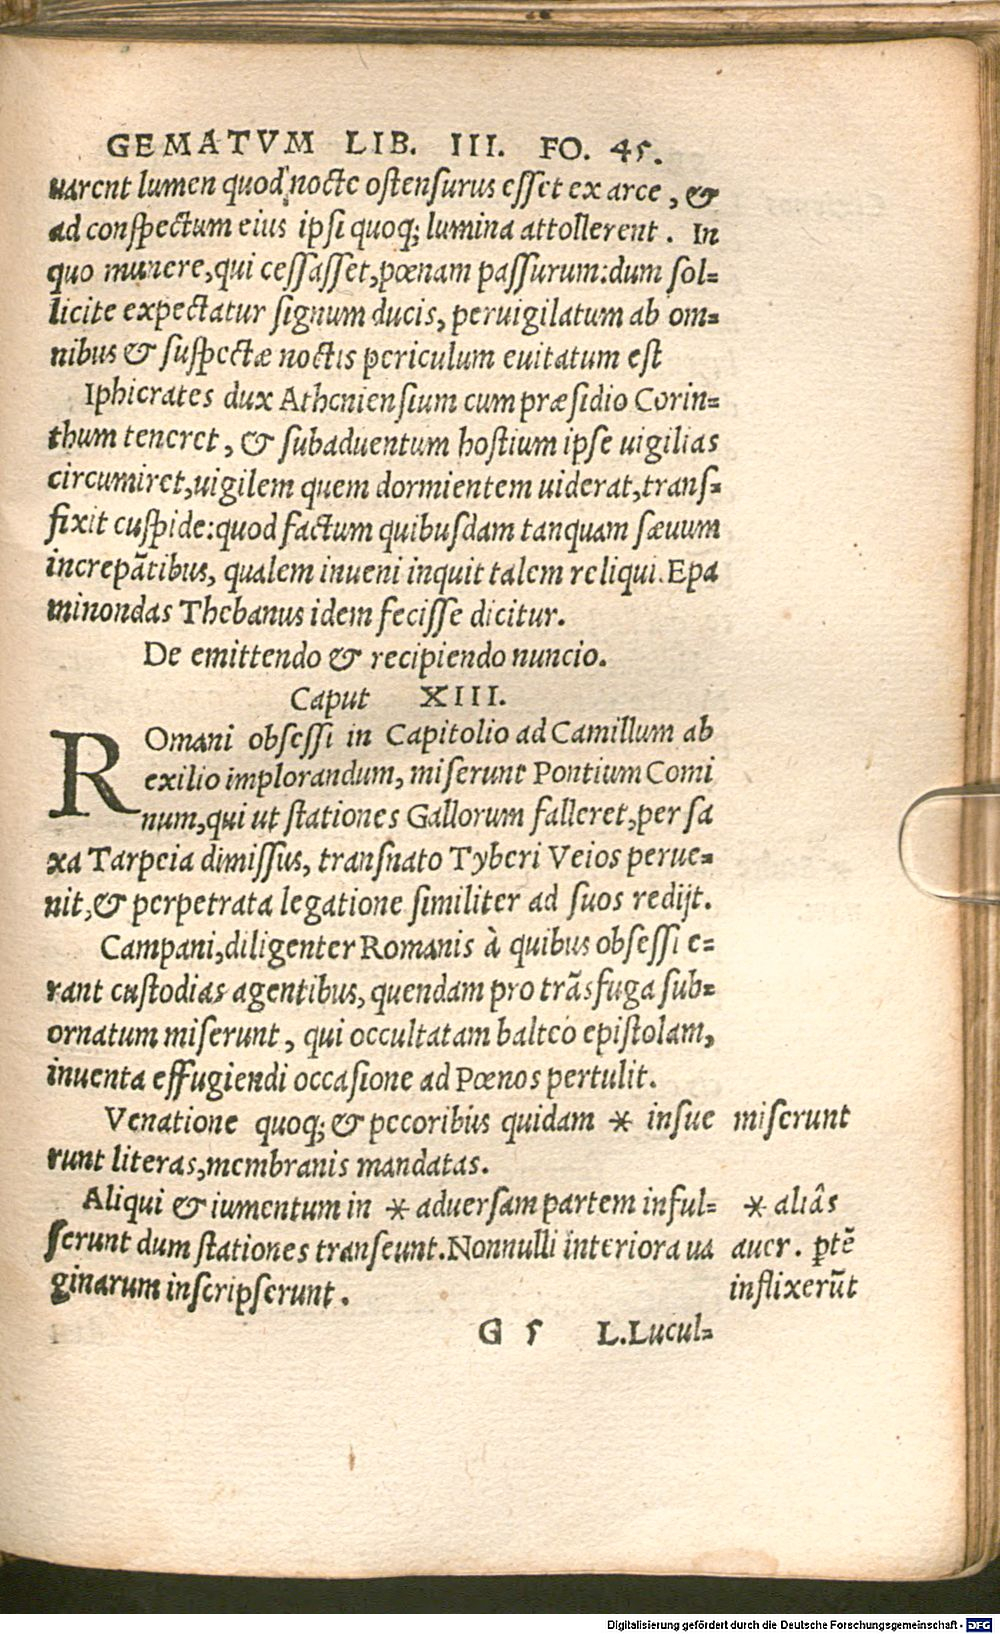 GEMATVM LIB. III. FO. 45.
uarent lumen quod nocte ostensurus esset ex arce, &
ad conspectum eius ipsi quoq; lumina attollerent. In
quo munere, qui cessasset, pœnam passurum: dum sol=
licite expectatur signum ducis, peruigilatum ab om=
nibus & suspectæ noctis periculum euitatum est
Iphicrates dux Atheniensium cum præsidio Corin=
thum teneret, & sub aduentum hostium ipse uigilias
circumiret, uigilem quem dormientem uiderat, trans=
fixit cuspide: quod factum quibusdam tanquam sæuum
increpãtibus, qualem inueni inquit talem reliqui. Epa
minondas Thebanus idem fecisse dicitur.
De emittendo & recipiendo nuncio.
Caput XIII.
ROmani obsessi in Capitolio ad Camillum ab
exilio implorandum, miserunt Pontium Comi
num, qui ut stationes Gallorum falleret, per sa
xa Tarpeia dimissus, transnato Tyberi Veios perue=
nit, & perpetrata legatione similiter ad suos redijt.
Campani, diligenter Romanis à quibus obsessi e=
rant custodias agentibus, quendam pro trãsfuga sub=
ornatum miserunt, qui occultatam balteo epistolam,
inuenta effugiendi occasione ad Pœnos pertulit.
Venatione quoq; & pecoribus quidam * insue miserunt
runt literas, membranis mandatas.
Aliqui & iumentum in * aduersam partem inful= * aliâs
serunt dum stationes transeunt. Nonnulli interiora ua auer. ptẽ
ginarum inscripserunt. inflixerũt
G 5 L. Lucul=
Digitalisierung gefördert durch die Deutsche Forschungsgemeinschaft - DFG